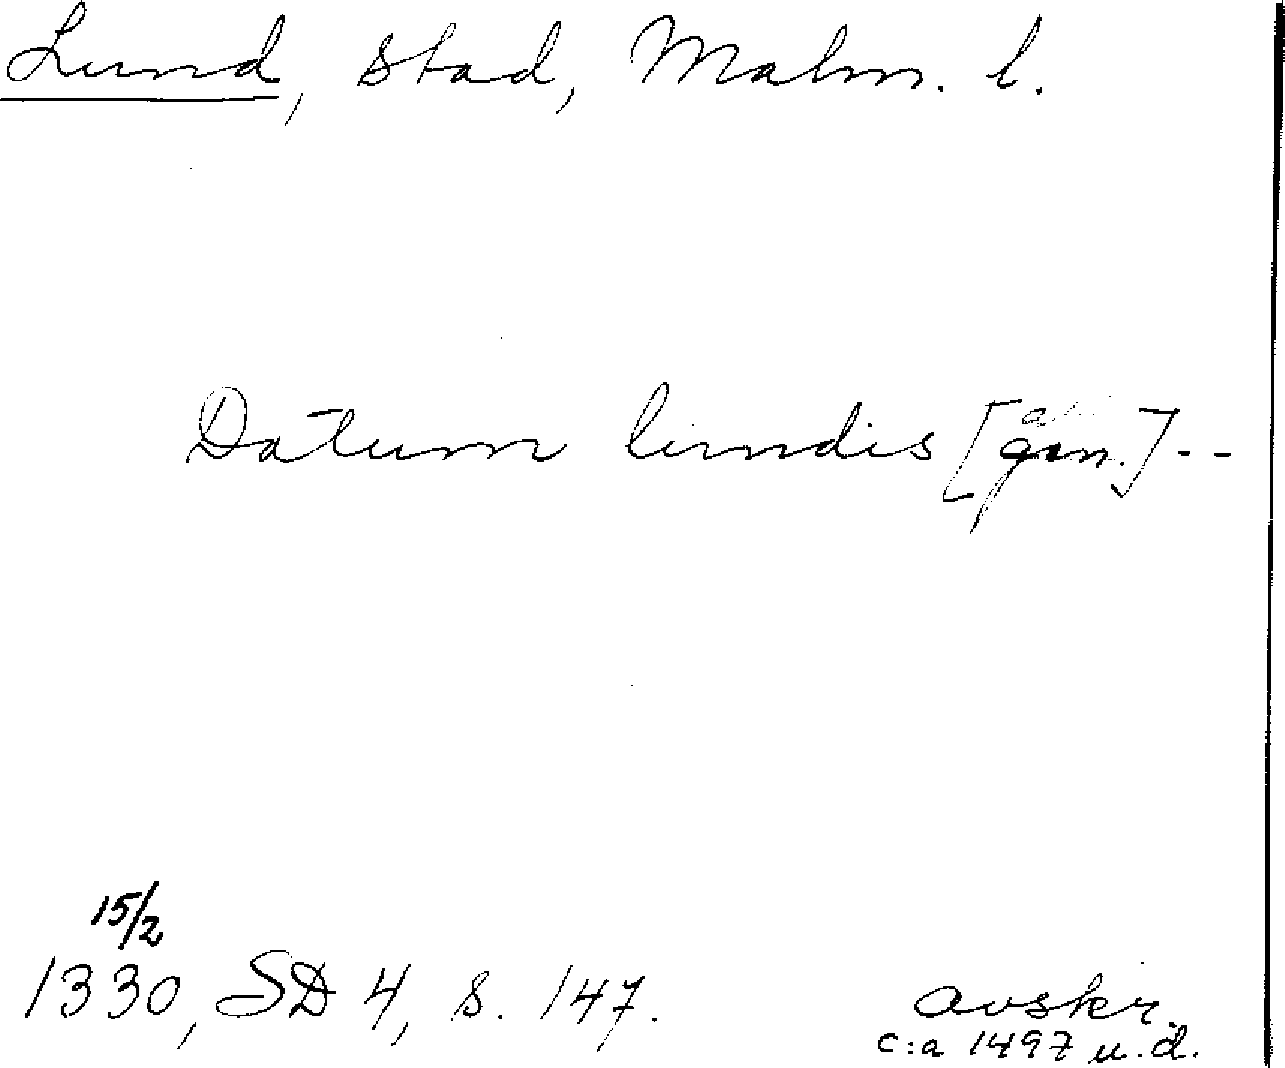 Lund, stad, Malm. l.
Datum lundis [gen.] --
15/2
1330, SD 4, s. 147.
avskr.
c:a 1497 u.d.